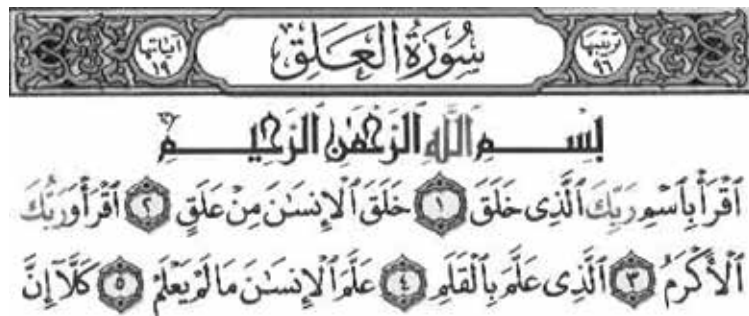 ترتيبها ٩٦ سُورَةُ العَلَقِ آياتها ١٩
بِسْمِ ٱللَّهِ ٱلرَّحْمَٰنِ ٱلرَّحِيمِ
ٱقْرَأْ بِٱسْمِ رَبِّكَ ٱلَّذِى خَلَقَ ١ خَلَقَ ٱلْإِنسَـٰنَ مِنْ عَلَقٍ ٢ ٱقْرَأْ وَرَبُّكَ
ٱلْأَكْرَمُ ٣ ٱلَّذِى عَلَّمَ بِٱلْقَلَمِ ٤ عَلَّمَ ٱلْإِنسَـٰنَ مَا لَمْ يَعْلَمْ ٥ كَلَّآ إِنَّ